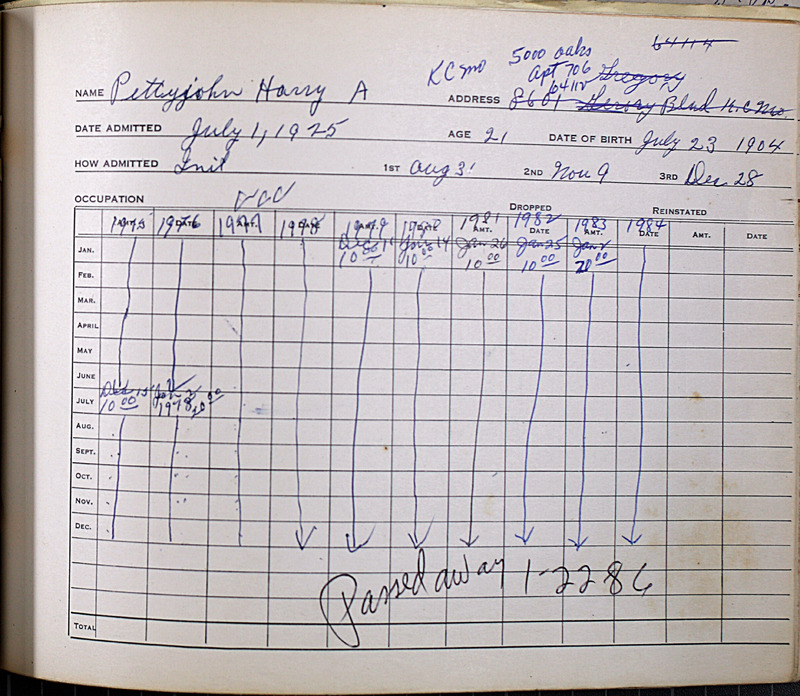 64114
KC mo 5000 oaks
apt 706 Gregory
64112
NAME Pettyjohn Harry A ADDRESS 8601 Hersey Blvd K.C. Mo.
DATE ADMITTED July 1, 1925 AGE 21 DATE OF BIRTH July 23 1904
HOW ADMITTED Init 1ST Aug 31 2ND Nov 9 3RD Dec 28
OCCUPATION DROPPED REINSTATED
1975 1976 1977 1978 1979 1980 1981 AMT. 1982 DATE 1983 AMT. 1984 DATE AMT. DATE
JAN. Dec 11 10 00 Jan 14 10 00 Jan 26 10 00 Jan 25 10 00 Jan 20 00
FEB.
MAR.
APRIL
MAY
JUNE
JULY Dec 15 10 00 Jan 2 1978 20 00
AUG.
SEPT.
OCT.
NOV.
DEC.
Passed away 1-22 86
TOTAL